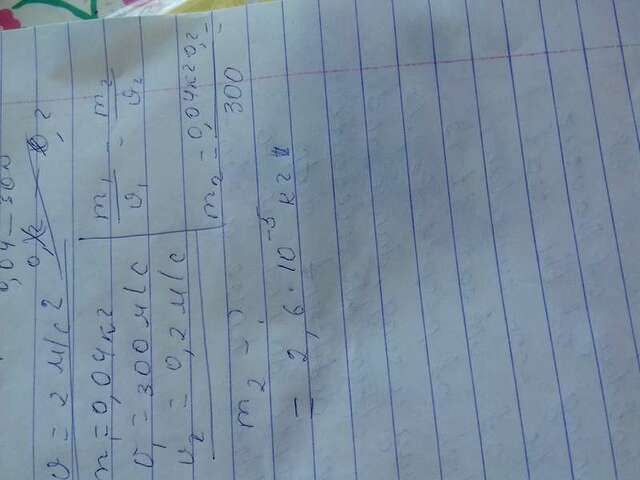 0,04 — 300
0,2
0,2
υ = 2 м/с²
m₁ = 0,04 кг
υ₁ = 300 м/с
υ₂ = 0,2 м/с
m₂ – ?
m₁/υ₁ = m₂/υ₂
m₂ = 0,04 кг·0,2/300 =
= 2,6·10⁻⁵ кг